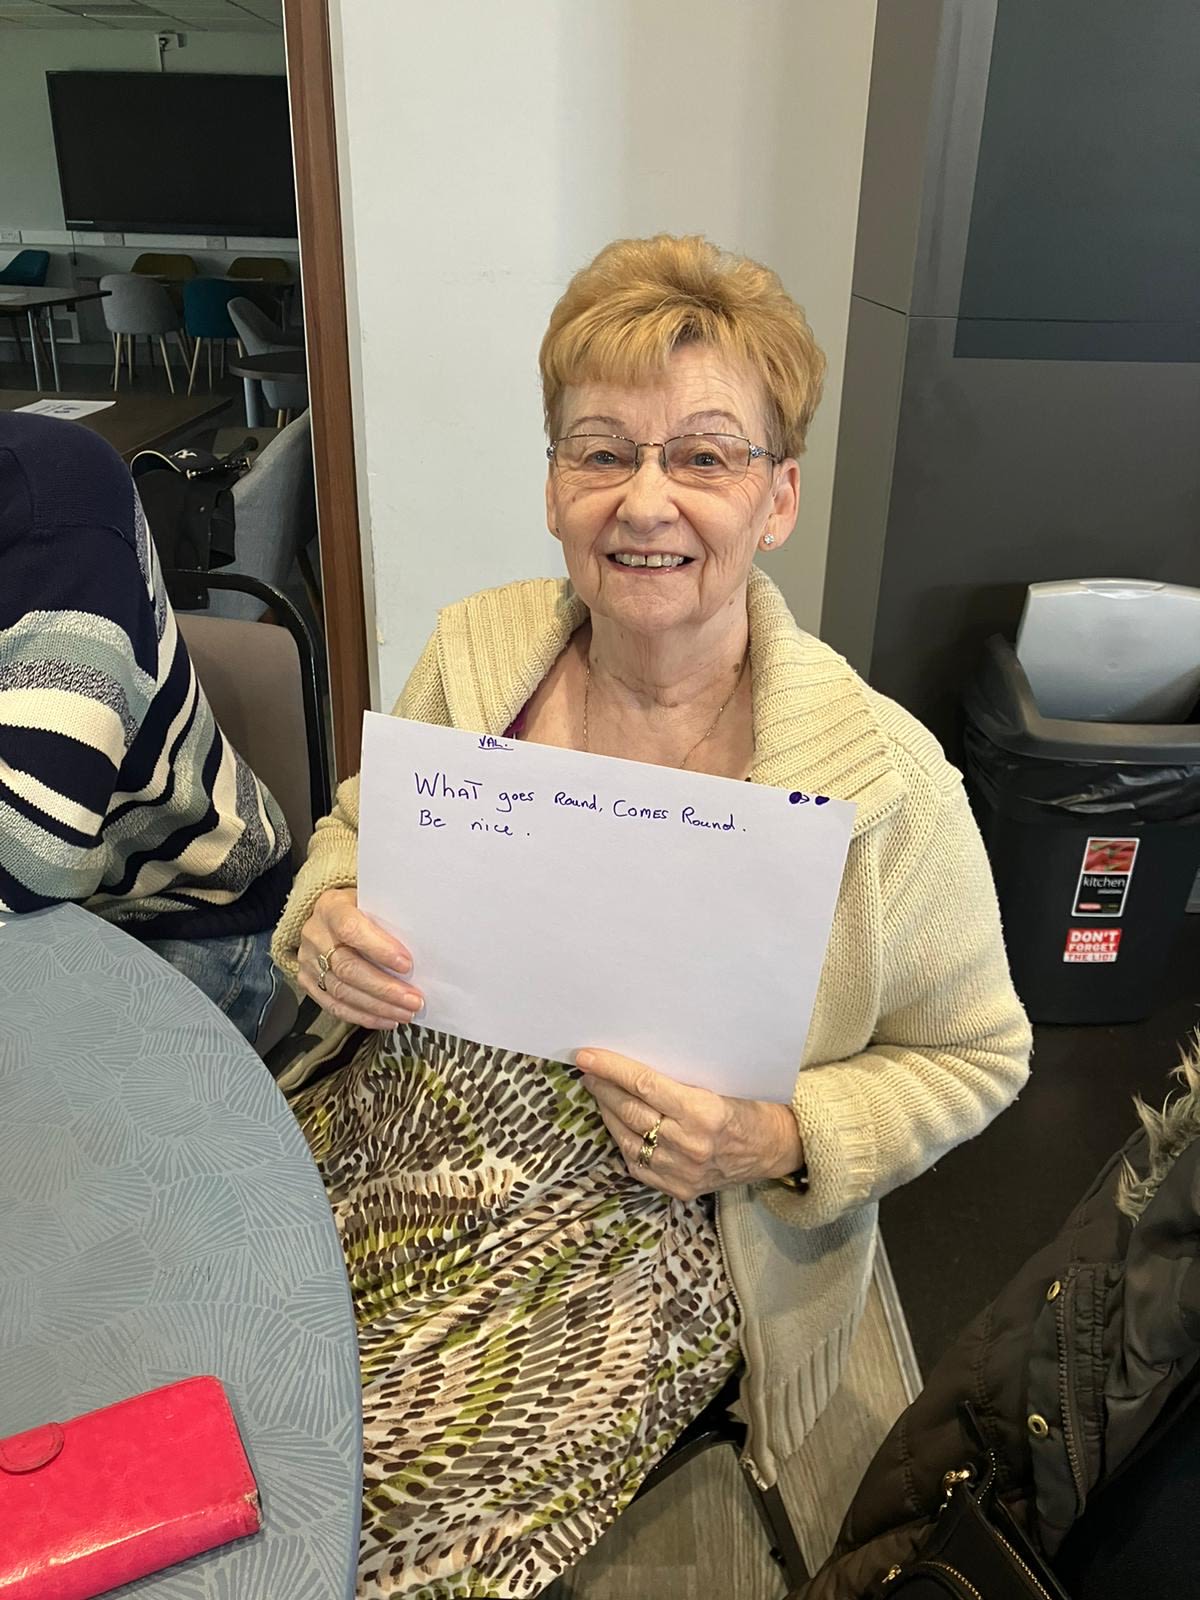 VAL.
WHAT goes Round, COMES Round.
Be nice.
kitchen
DON'T
FORGET
THE LID!